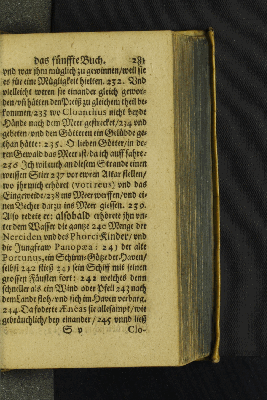 das fünffte Buch. 281
vnd war jhm müglich zu gewinnen/ weil sie
es für eine Mügligkeit hielten. 232. Vnd
vielleicht weren sie einander gleich gewor-
den/ vñ hätten den Preiß zu gleichem theil be-
kommen/ 233 wo Cloanthus nicht beyde
Hände nach dem Meer gestrecket/ 234 vnd
gebeten/ vnd den Göttern ein Gelübde ge-
than hätte: 235. O lieben Götter/ in de-
ren Gewald das Meer ist/ da ich auff fahre.
236 Jch wil euch an diesem Strande einen
weissen Stier 237 vor ewren Altar stellen/
wo jhr mich erhöret (voti reus) vnd das
Eingeweide/ 238 ins Meer werffen/ vnd ei-
nen Becher darzu ins Meer giessen. 239.
Also redete er: alsobald erhörete jhn vn-
ter dem Wasser die gantze 240 Menge der
Nereiden vnd des Phorci Kinder/ vnd
die Jungfraw Panopæa: 241 der alte
Portunus, ein Schirm-Götze der Haven/
selbst 242 stieß 241 sein Schiff mit seinen
grossen Fäusten fort: 242 welches denn
schneller als ein Wind oder Pfeil 243 nach
dem Lande floh/ vnd sich im Haven verbarg.
244. Da foderte Æneas sie allesampt/ wie
gebräuchlich/ bey einander/ 245 vnnd ließ
S v Clo-